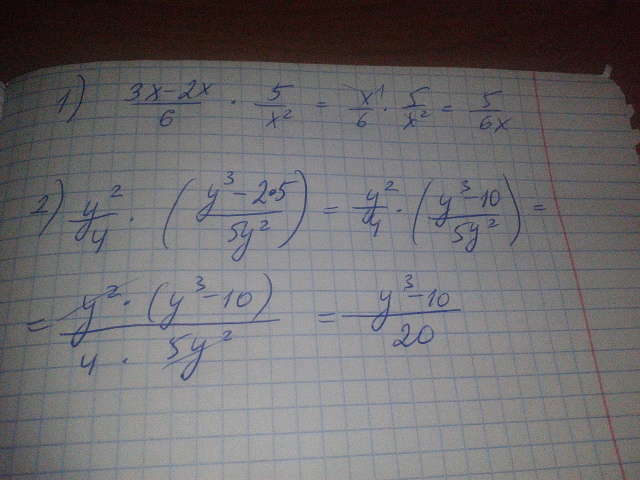 1) (3x-2x)/6 · 5/x² = x¹/6 · 5/x² = 5/6x
2) y²/4 · ((y³-2·5)/5y²) = y²/4 · ((y³-10)/5y²) =
= (y² · (y³-10))/(4 · 5y²) = (y³-10)/20